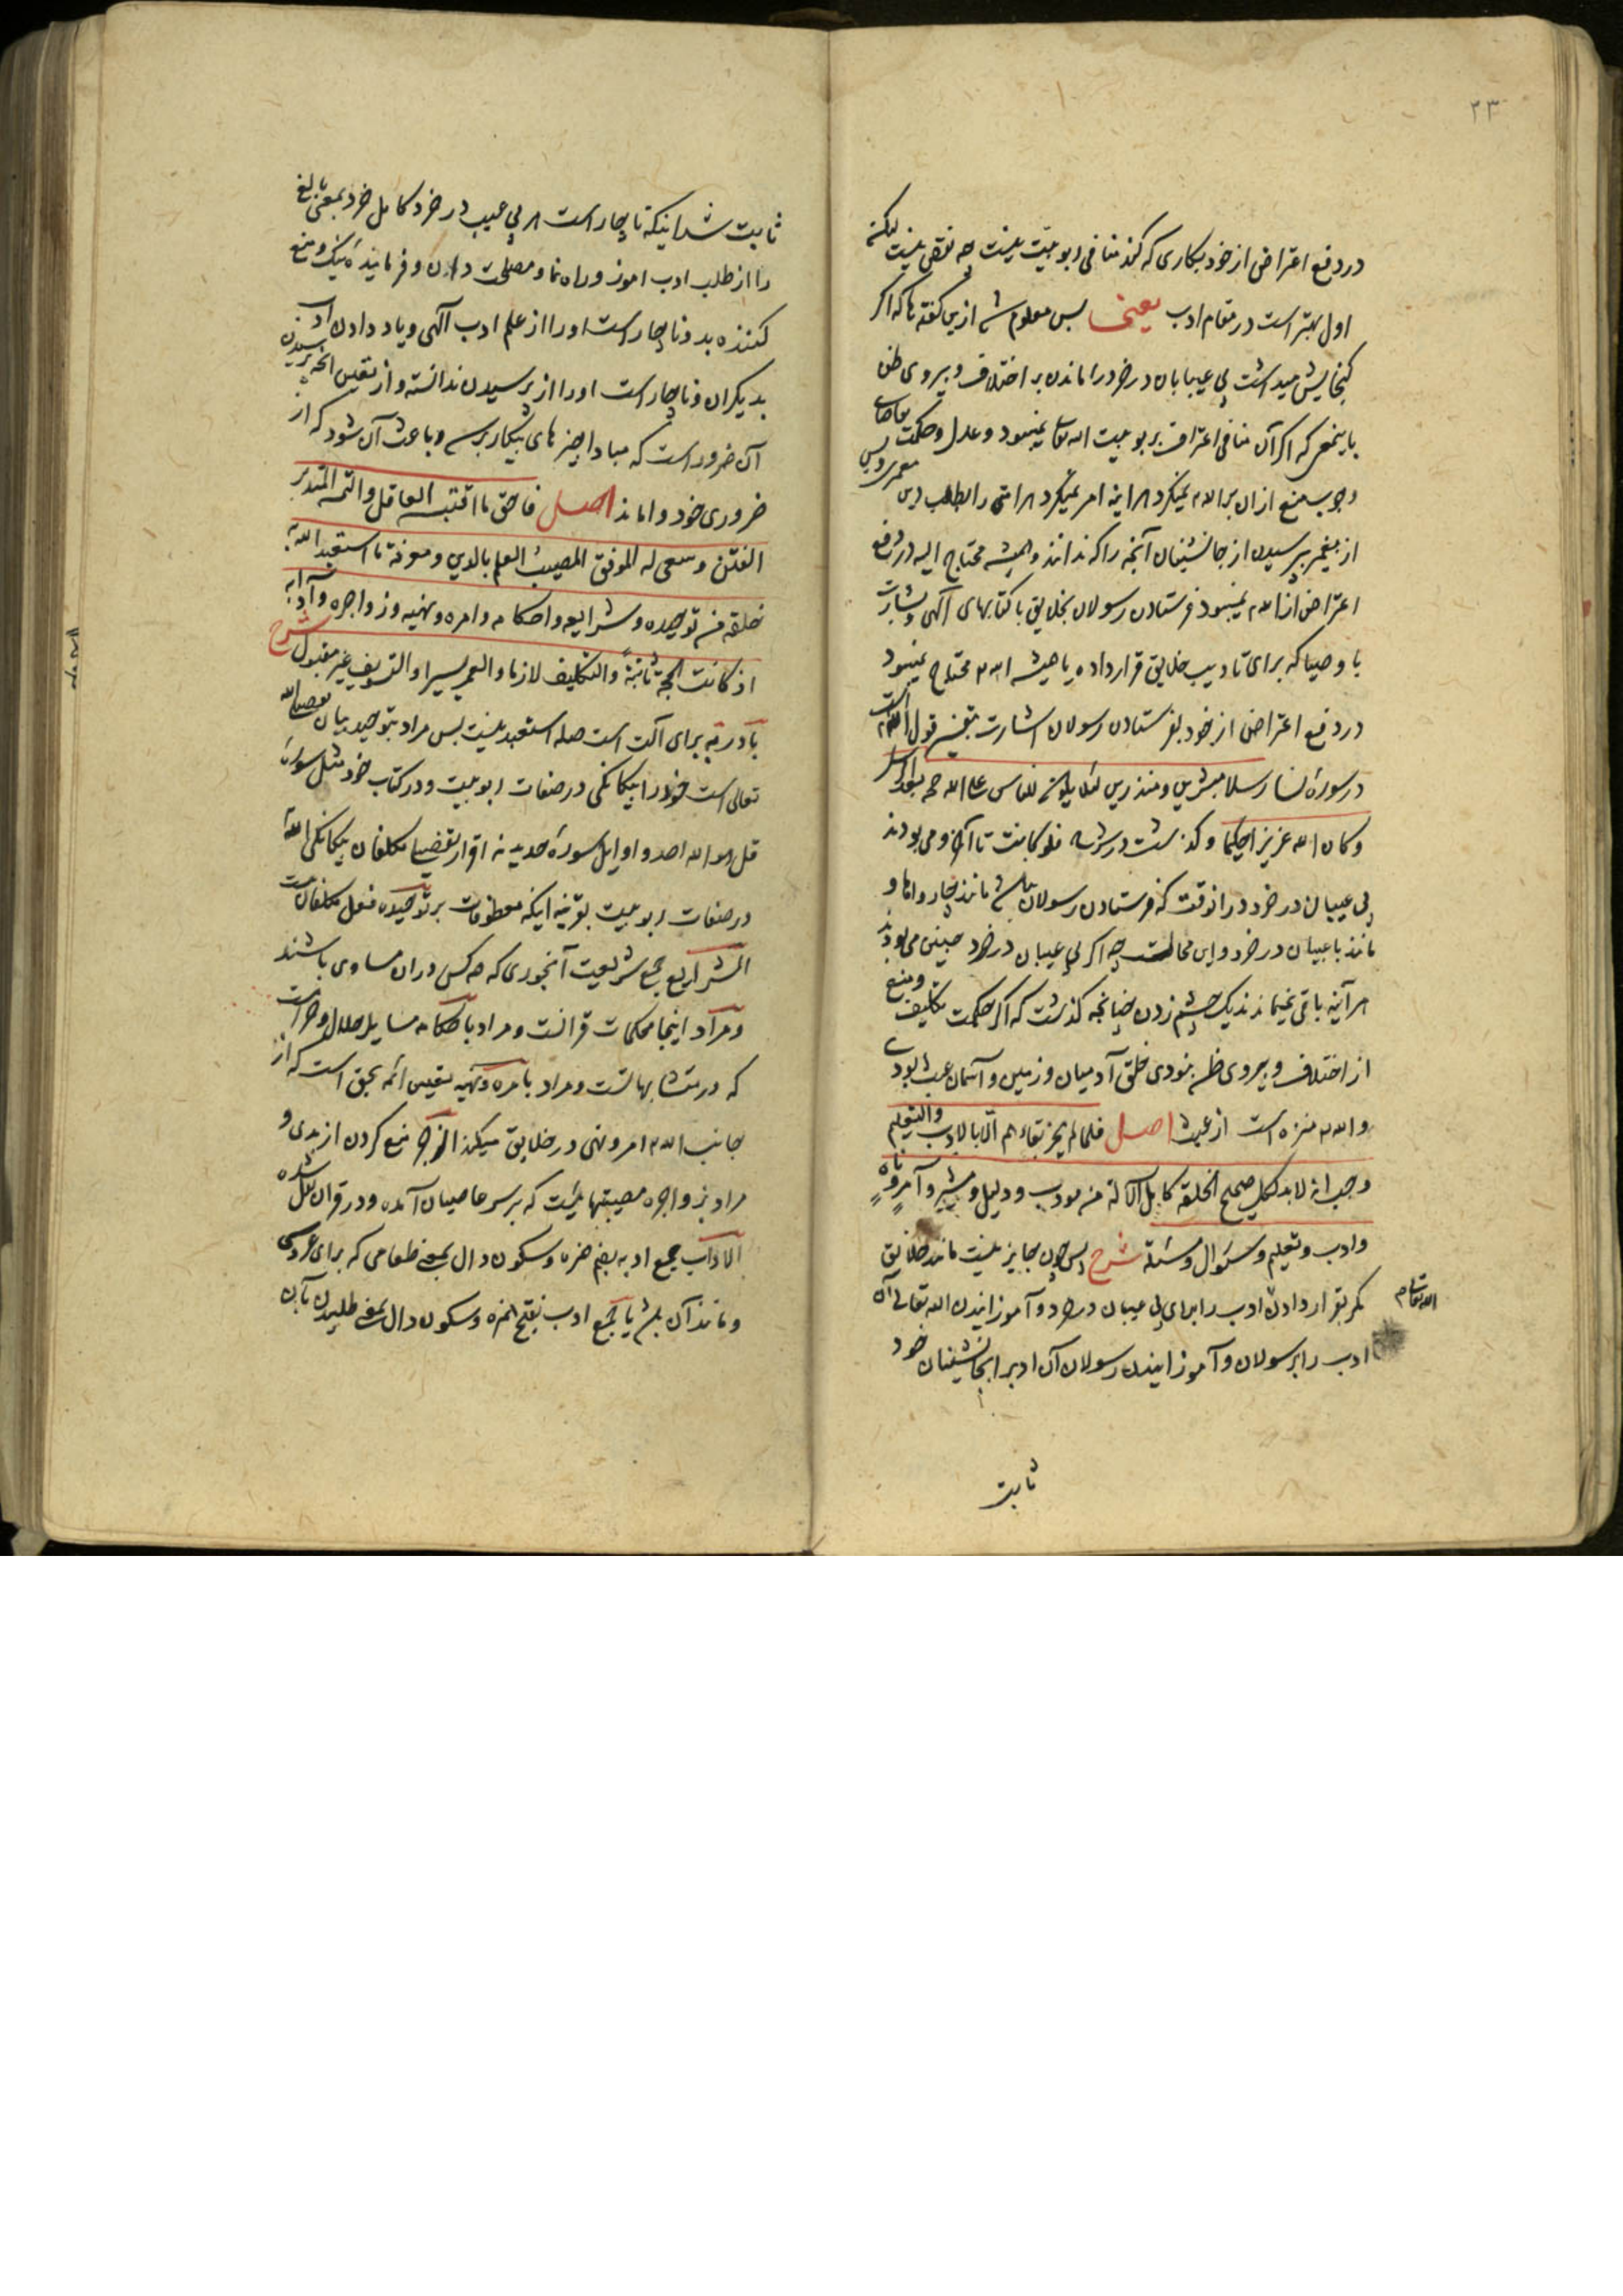 ۲۳
در دفع اعتراض از خود بکاری که کند منافی ربوبیّت نیست چه نقص نیست لیکن
اول بهتر است در مقام ادب یعنی پس معلوم شد ازین گفته‌ها که اگر
گنجایش میداشت بی عیبان در خرد را ماندن بر اختلاف و پیروی ظن
باینمعنی که اگر آن منافی اعتراف بربوبیت الله تعالی نمیبود و عدل و حکمت
وجوب منع ازان بر الله نمیکرد هر آینه امر نمیکرد هر امتی را بطلب دین
از پیغمبر پرسیدن از جانشینان آنچه را که ندانند و همیشه محتاج الیه در دفع
اعتراض از الله نمیبود فرستادن رسولان بخلایق با کتابهای الهی و بشارت
با وصیا که برای تادیب خلایق قرار داده یا همیشه الله محتاج نمیبود
در دفع اعتراض از خود بفرستادن رسولان اشارت بتفسیر قول الله
در سورۀ نسا رسلا مبشرین و منذرین لئلا یکون للناس علی الله حجه بعد الرسل
وکان الله عزیزا حکیما و گذشت در شرح فلو کانت تا آخر و می بودند
بی عیبان در خرد درانوقت که فرستادن رسولان نباشد مانند چارواها و
مانند با عیبان در خرد و این محالست چه اگر بی عیبان در خرد چنین می بودند
هر آینه باقی نمیماندند یک چشم زدن چنانچه گذشت که اگر حکمت تکلیف و منع
از اختلاف و پیروی ظن نبودی خلق آدمیان و زمین و آسمان عبث بودی
و الله منزه است از عبث اصل فلما لم یجز بقاءهم الّا بالادب والتعلیم
وجب انه لابد لکل صحیح الخلقة کامل الآلة من مودب و دلیل و مشیر و آمر و ناه
وادب وتعلیم وسئوال ومسئلة شرح پس چون جایز نیست ماندن خلایق
مگر بقرار دادن ادب را برای بی عیبان در خرد و آموزانیدن الله تعالی آن
ادب را برسولان و آموزانیدن رسولان آن ادب را بجانشینان خود
ثابت
ثابت شد اینکه ناچار است هر بی عیب در خرد کامل خرد بمعنی بالغ
را از طلب ادب اموز و راه نما و مصلحت دان و فرماینده نیک و منع
کننده بد و ناچار است او را از علم ادب الهی و یاد دادن ادب
بدیگران و ناچار است او را از پرسیدن ندانسته و از تعین آنچه پرسیدن
آن ضرور است که مبادا چیزهای بیکار پرسد و باعث آن شود که از
ضروری خود واماند اصل فاحق ما اقتبسه العاقل والتمسه المتدبر
الفطن وسعی له الموفق المصیب العلم بالدین ومعرفة ما استعبد الله به
خلقه من توحیده وشرایعه واحکامه وامره ونهیه وزواجره وآدابه
اذ کانت الحجة ثابتة والتکلیف لازما والعمر یسیرا والتسویف غیر مقبول شرح
با در به برای آلت است صله استعبد نیست پس مراد بتوحید بیان
تعالی است خود را بیگانگی در صفات ربوبیت و در کتاب خود مثل سورۀ
قل هو الله احد و اوایل سورۀ حدید نه اقرار تفصیلی مکلفان بیگانگی الله
در صفات ربوبیت بقرینه اینکه معطوفات بر توحیده فعل مکلفان نیست
الشرایع جمع شریعت آنخوری که همه کس دران مساوی باشند
ومراد اینجا محکمات قرانست و مراد باحکامه مسایل حلال و حرامست
که در متشابهاتست و مراد بامره و نهیه تعیین ائمه بحق است که از
جانب الله امر و نهی در خلایق میکنند الزجر منع کردن از بدی و
مراد بزواجره مصیبتهائیست که بر سر عاصیان آمده و در قران نقل شده
الاداب جمع ادبه بضم همزه و سکون دال بمعنی طعامی که برای عروسی
و مانند آن باشد یا جمع ادب بفتح همزه و سکون دال بمعنی طلبیدن